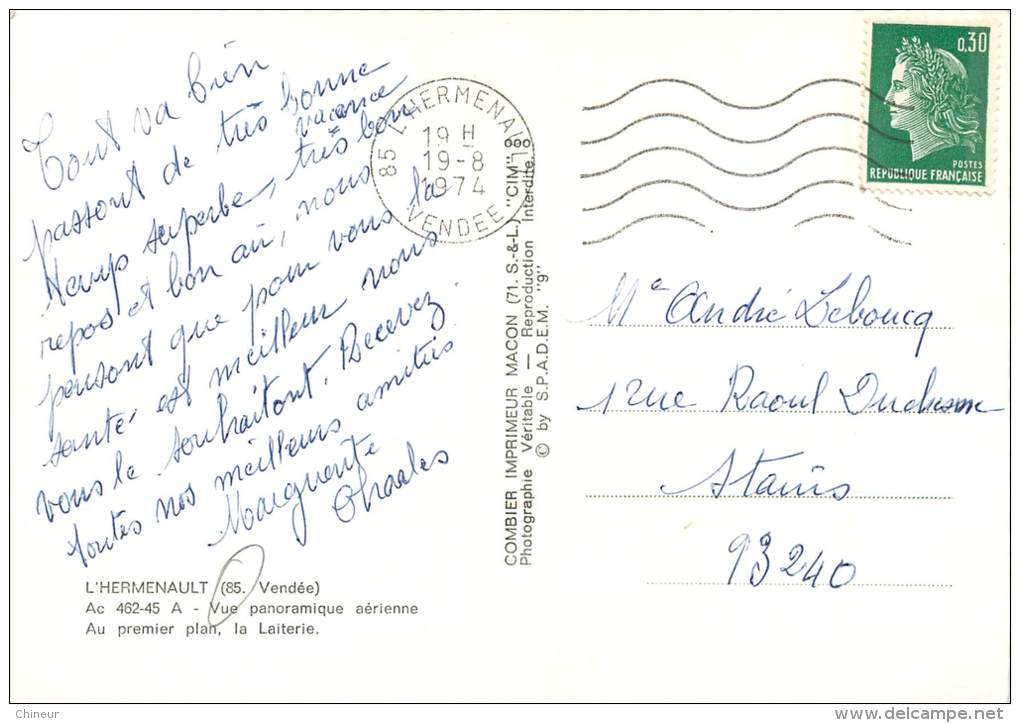 Tout va bien
passont de très bonne
vacance
temps superbe, très bon
repos et bon air, nous
pensont que pour vous la
santé est meilleur nous
vous le souhaitont. Recevez
toutes nos meilleurs amitiés
Marguerite
Charles
L'HERMENAULT (85. Vendée)
Ac 462-45 A - Vue panoramique aérienne
Au premier plan, la Laiterie.
COMBIER IMPRIMEUR MACON (71. S.-&-L.) "CIM"
Photographie Véritable — Reproduction Interdite
© by S.P.A.D.E.M. "9"
85 L'HERMENAULT
19 H
19-8
1974
VENDEE
0,30
POSTES
REPUBLIQUE FRANÇAISE
Me André Leboucq
1 rue Raoul Duchesne
Stains
93240
Chineur
delcampe.net